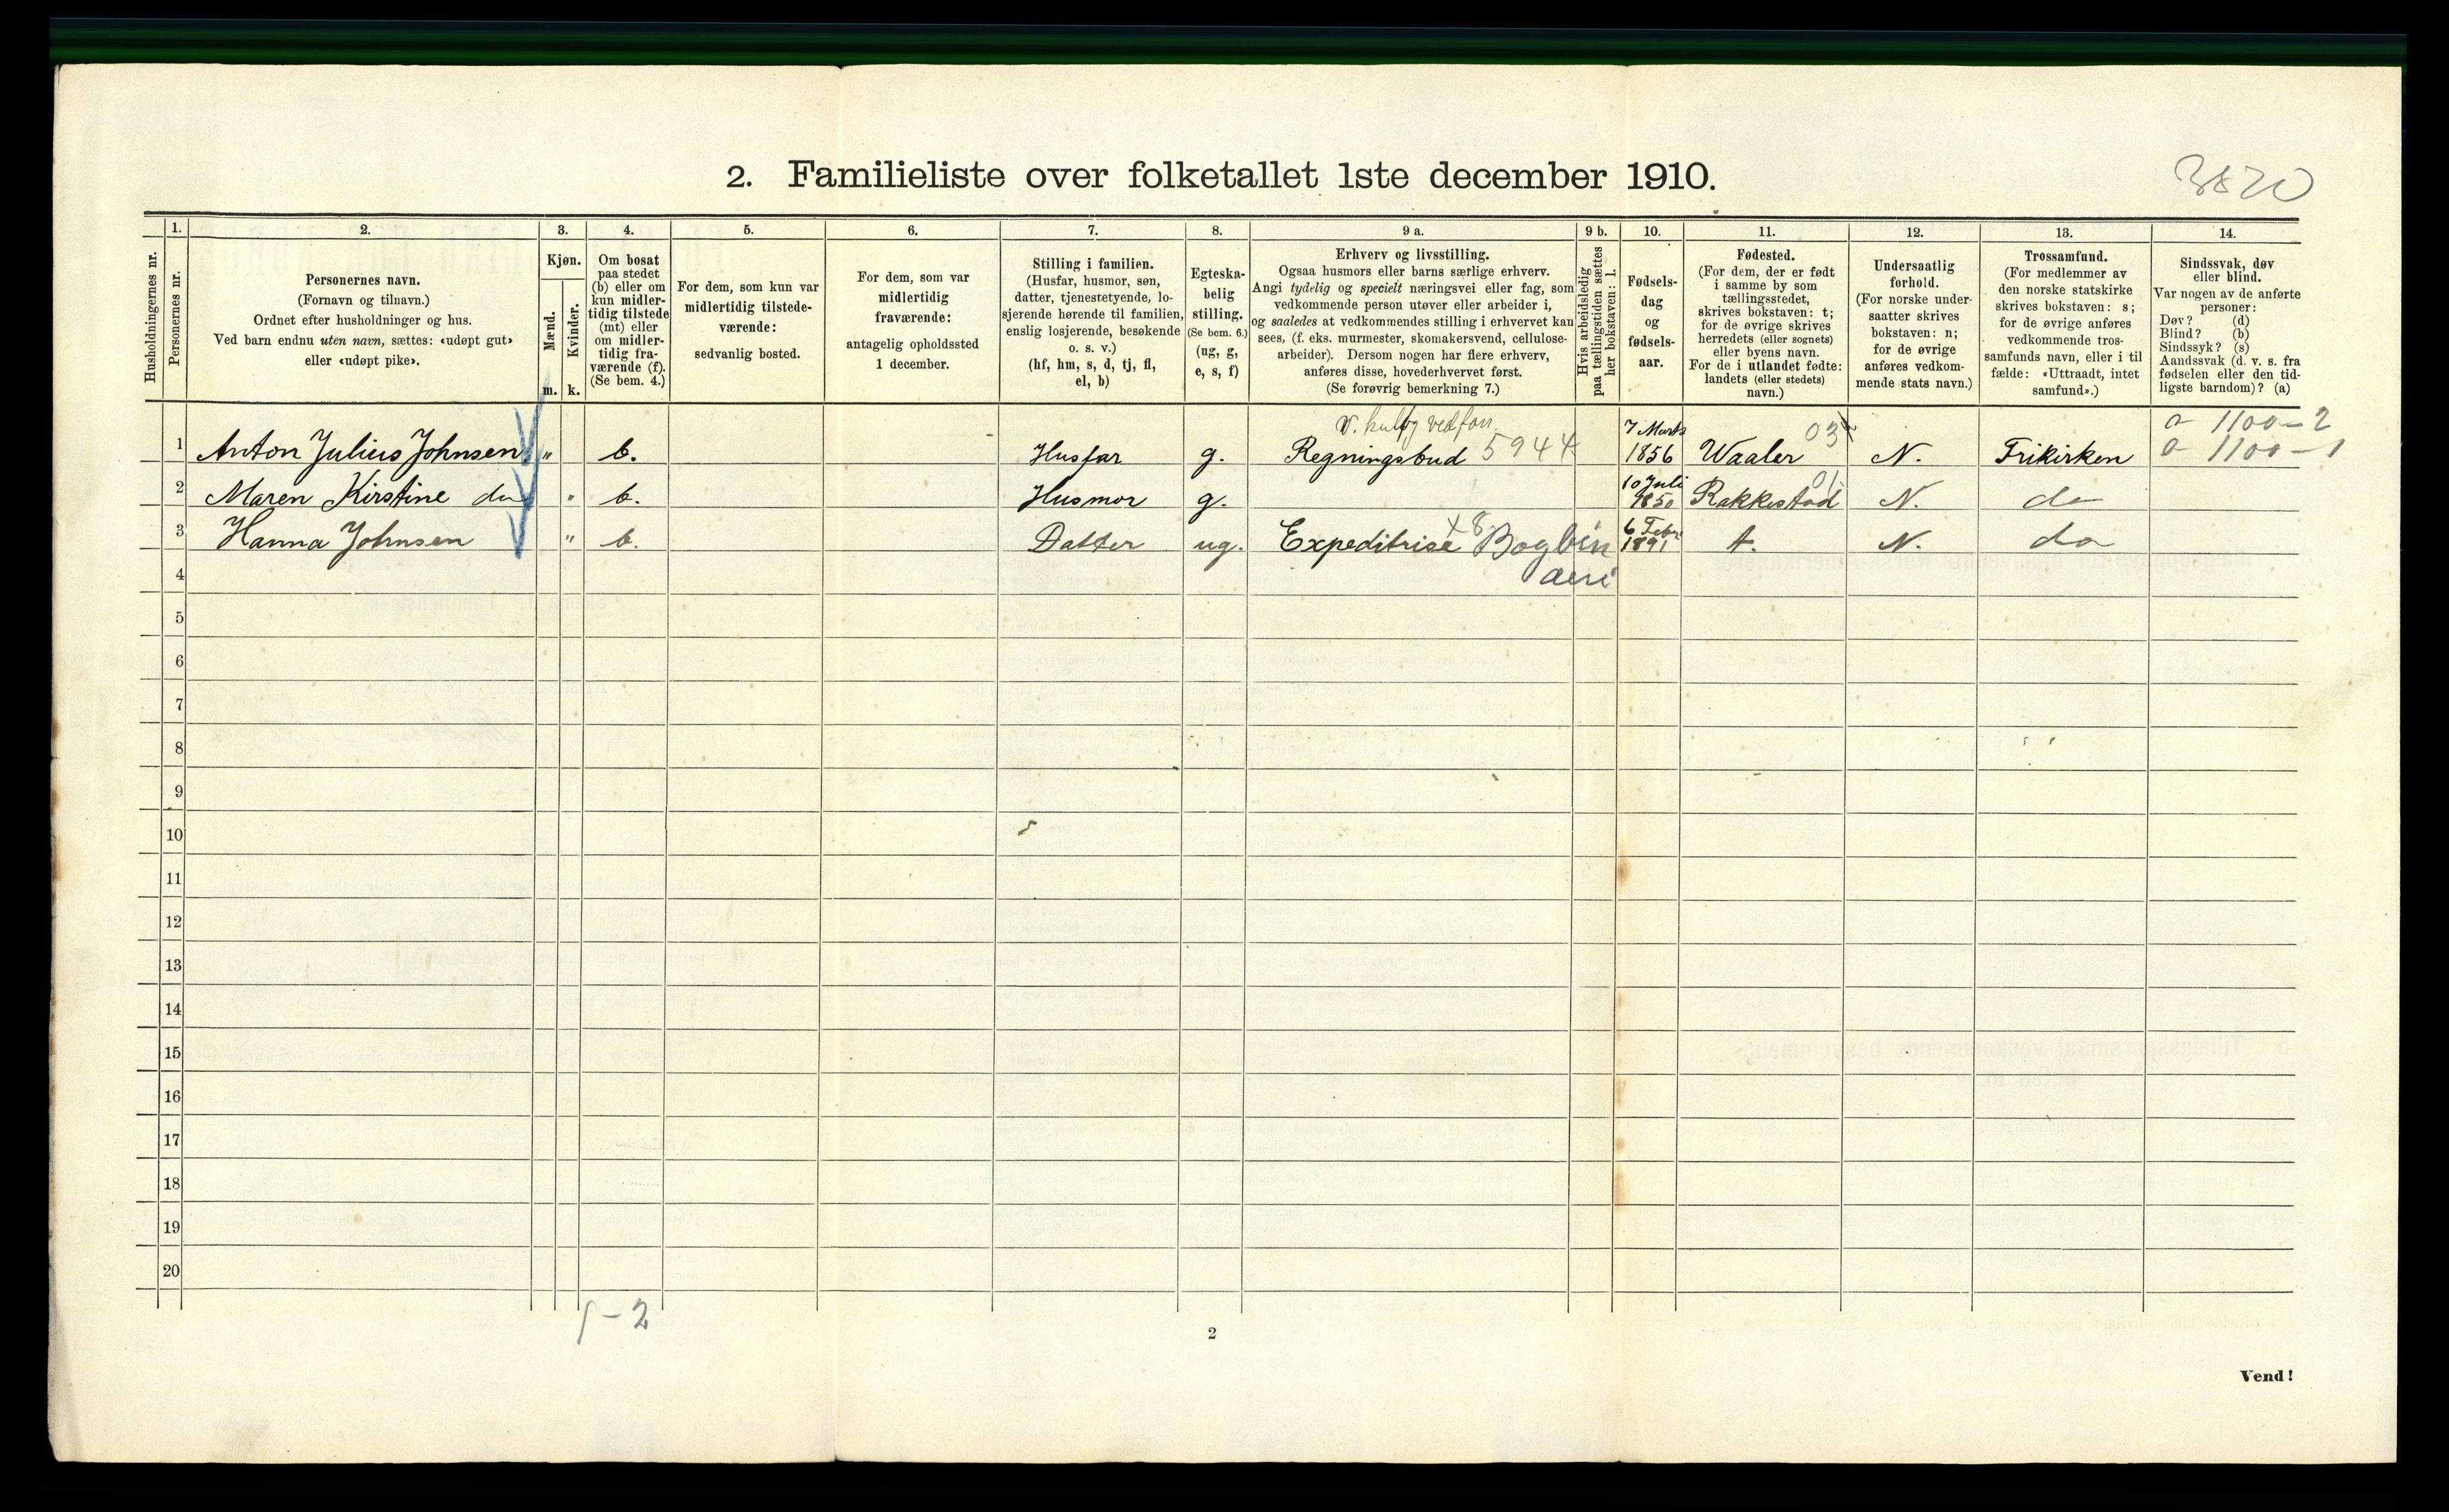 2. Familieliste over folketallet 1ste december 1910.
3820
Husholdningernes nr.
1.
Personernes nr.
2.
Personernes navn.
(Fornavn og tilnavn.)
Ordnet efter husholdninger og hus.
Ved barn endnu uten navn, sættes: «udøpt gut»
eller «udøpt pike».
3.
Kjøn.
Mænd.
Kvinder.
m.
k.
4.
Om bosat
paa stedet
(b) eller om
kun midler-
tidig tilstede
(mt) eller
om midler-
tidig fra-
værende (f).
(Se bem. 4.)
5.
For dem, som kun var
midlertidig tilstede-
værende:
sedvanlig bosted.
6.
For dem, som var
midlertidig
fraværende:
antagelig opholdssted
1 december.
7.
Stilling i familien.
(Husfar, husmor, søn,
datter, tjenestetyende, lo-
sjerende hørende til familien,
enslig losjerende, besøkende
o. s. v.)
(hf, hm, s, d, tj, fl,
el, b)
8.
Egteska-
belig
stilling.
(Se bem. 6.)
(ug, g,
e, s, f)
9 a.
Erhverv og livsstilling.
Ogsaa husmors eller barns særlige erhverv.
Angi tydelig og specielt næringsvei eller fag, som
vedkommende person utøver eller arbeider i,
og saaledes at vedkommendes stilling i erhvervet kan
sees, (f. eks. murmester, skomakersvend, cellulose-
arbeider). Dersom nogen har flere erhverv,
anføres disse, hovederhvervet først.
(Se forøvrig bemerkning 7.)
9 b.
Hvis arbeidsledig
paa tællingstiden sættes
her bokstaven: l.
10.
Fødsels-
dag
og
fødsels-
aar.
11.
Fødested.
(For dem, der er født
i samme by som
tællingsstedet,
skrives bokstaven: t;
for de øvrige skrives
herredets (eller sognets)
eller byens navn.
For de i utlandet fødte:
landets (eller stedets)
navn.)
12.
Undersaatlig
forhold.
(For norske under-
saatter skrives
bokstaven: n;
for de øvrige
anføres vedkom-
mende stats navn.)
13.
Trossamfund.
(For medlemmer av
den norske statskirke
skrives bokstaven: s;
for de øvrige anføres
vedkommende tros-
samfunds navn, eller i til
fælde: «Uttraadt, intet
samfund».)
14.
Sindssvak, døv
eller blind.
Var nogen av de anførte
personer:
Døv? (d)
Blind? (b)
Sindssyk? (s)
Aandssvak (d. v. s. fra
fødselen eller den tid-
ligste barndom)? (a)
1100-2
1 Anton Julius Johnsen " b. Husfar g. Regningsbud 5944 7 Marts 1856 Waaler 03 N. Frikirken 1100-1
2 Maren Kirstine do " b. Husmor g. 10 Juli 1850 Rakkestad 01 N. do
3 Hanna Johnsen " b. Datter ug. Expeditrise x8 Bogbin 6 Febr 1891 t. N. do
4 deri
5
6
7
8
9
10
11
12
13
14
15
16
17
18
19
20
1-2
2
Vend!